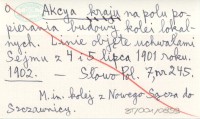 Akcya kraju na polu po-
pierania budowy kolei lokal-
nych. Linie objęte uchwałami
Sejmu z 4 i 5 lipca 1901 roku.
1902. — Słowo Pol. 7 pr 245.
M. in. kolej z Nowego Sącza do
Szczawnicy.